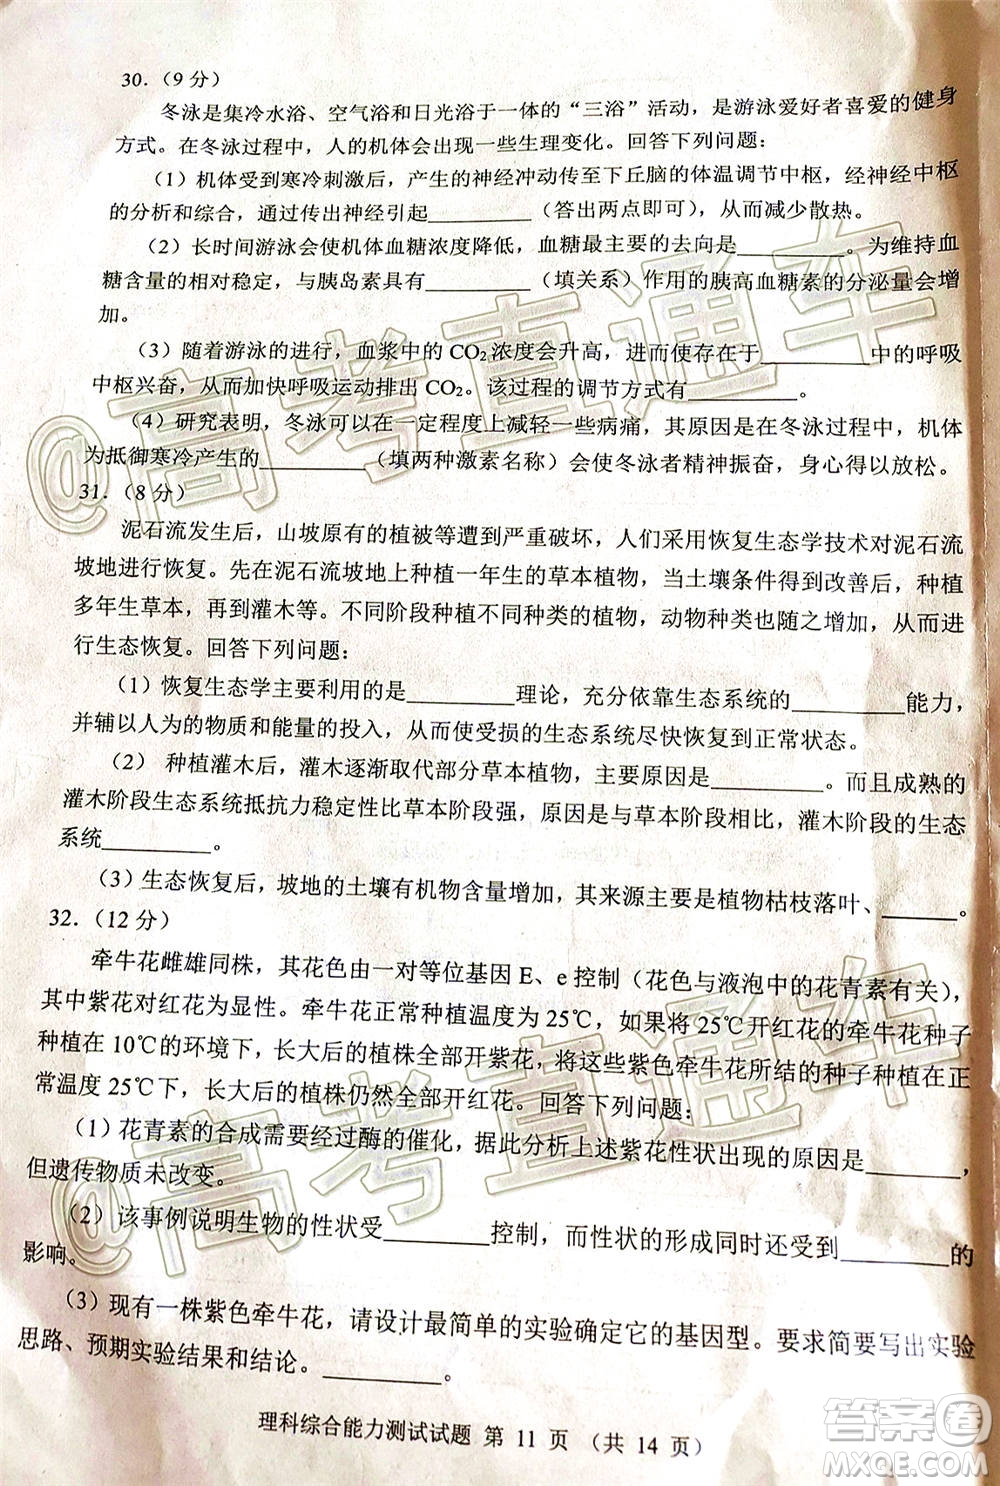 30.（9 分）
冬泳是集冷水浴、空气浴和日光浴于一体的“三浴”活动，是游泳爱好者喜爱的健身
方式。在冬泳过程中，人的机体会出现一些生理变化。回答下列问题：
（1）机体受到寒冷刺激后，产生的神经冲动传至下丘脑的体温调节中枢，经神经中枢
的分析和综合，通过传出神经引起__________（答出两点即可），从而减少散热。
（2）长时间游泳会使机体血糖浓度降低，血糖最主要的去向是__________。为维持血
糖含量的相对稳定，与胰岛素具有__________（填关系）作用的胰高血糖素的分泌量会增
加。
（3）随着游泳的进行，血浆中的 CO₂浓度会升高，进而使存在于__________中的呼吸
中枢兴奋，从而加快呼吸运动排出 CO₂。该过程的调节方式有__________。
（4）研究表明，冬泳可以在一定程度上减轻一些病痛，其原因是在冬泳过程中，机体
为抵御寒冷产生的__________（填两种激素名称）会使冬泳者精神振奋，身心得以放松。
31.（8 分）
泥石流发生后，山坡原有的植被等遭到严重破坏，人们采用恢复生态学技术对泥石流
坡地进行恢复。先在泥石流坡地上种植一年生的草本植物，当土壤条件得到改善后，种植
多年生草本，再到灌木等。不同阶段种植不同种类的植物，动物种类也随之增加，从而进
行生态恢复。回答下列问题：
（1）恢复生态学主要利用的是__________理论，充分依靠生态系统的__________能力，
并辅以人为的物质和能量的投入，从而使受损的生态系统尽快恢复到正常状态。
（2） 种植灌木后，灌木逐渐取代部分草本植物，主要原因是__________。而且成熟的
灌木阶段生态系统抵抗力稳定性比草本阶段强，原因是与草本阶段相比，灌木阶段的生态
系统__________。
（3）生态恢复后，坡地的土壤有机物含量增加，其来源主要是植物枯枝落叶、_______。
32.（12 分）
牵牛花雌雄同株，其花色由一对等位基因 E、e 控制（花色与液泡中的花青素有关），
其中紫花对红花为显性。牵牛花正常种植温度为 25℃，如果将 25℃开红花的牵牛花种子
种植在 10℃的环境下，长大后的植株全部开紫花，将这些紫色牵牛花所结的种子种植在正
常温度 25℃下，长大后的植株仍然全部开红花。回答下列问题：
（1）花青素的合成需要经过酶的催化，据此分析上述紫花性状出现的原因是_________，
但遗传物质未改变。
（2）该事例说明生物的性状受__________控制，而性状的形成同时还受到__________的
影响。
（3）现有一株紫色牵牛花，请设计最简单的实验确定它的基因型。要求简要写出实验
思路、预期实验结果和结论。__________。
理科综合能力测试试题 第 11 页 （共 14 页）
@高考直通车
@高考直通车
答案卷
MXQE.COM